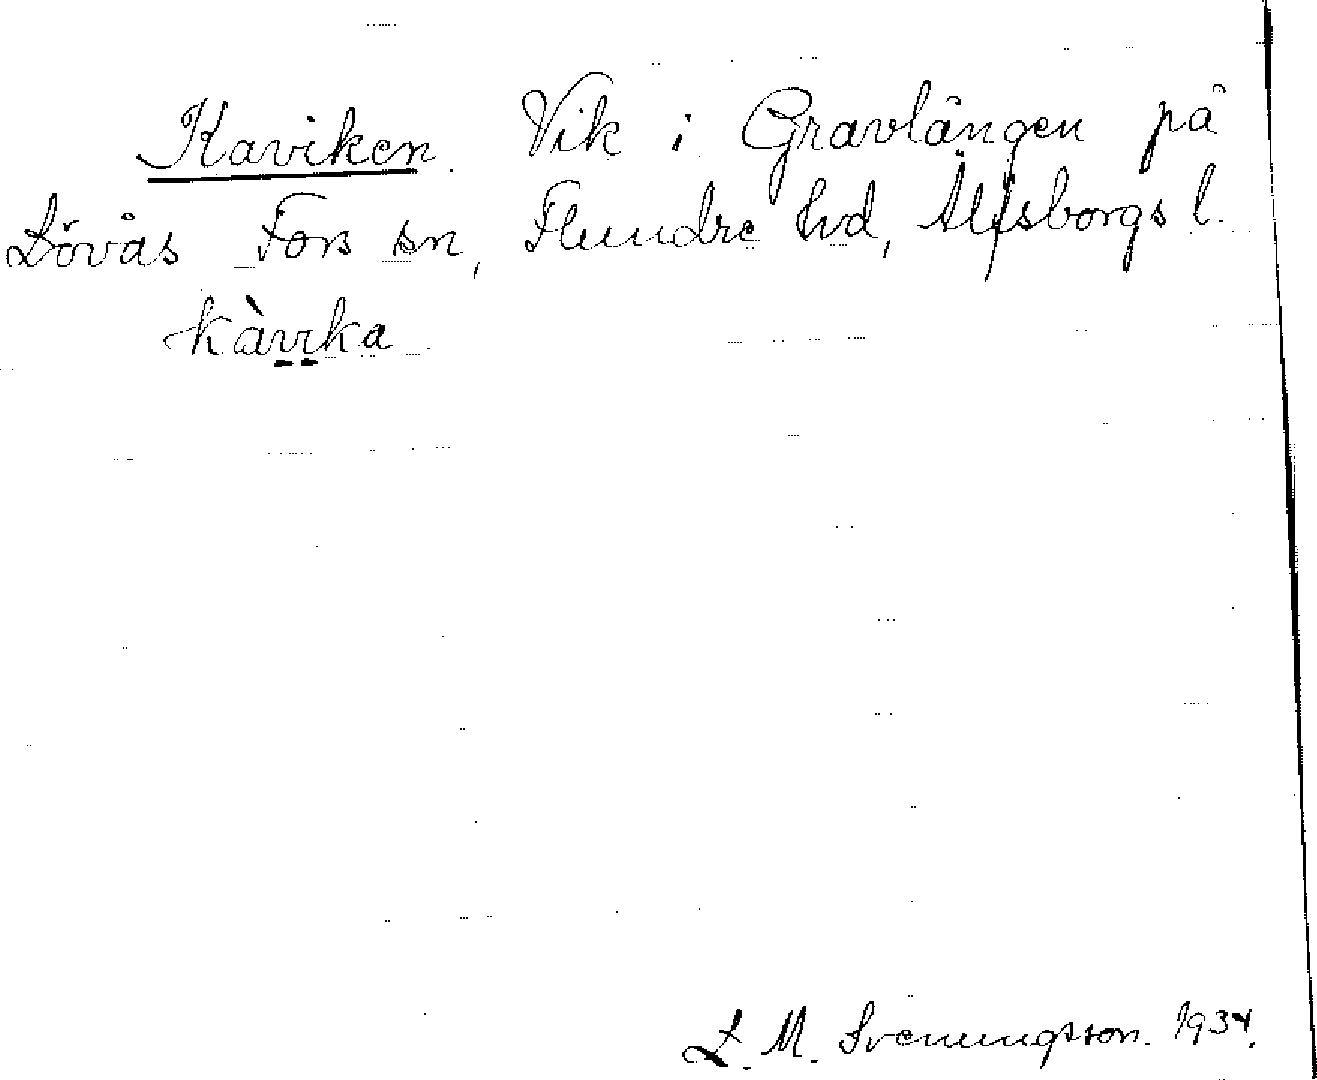 Kaviken. Vik i Gravlängen på
Lövås Fors sn, Flundre hd, Älfsborgs l.
kàvika
L. M. Svenungsson. 1934.